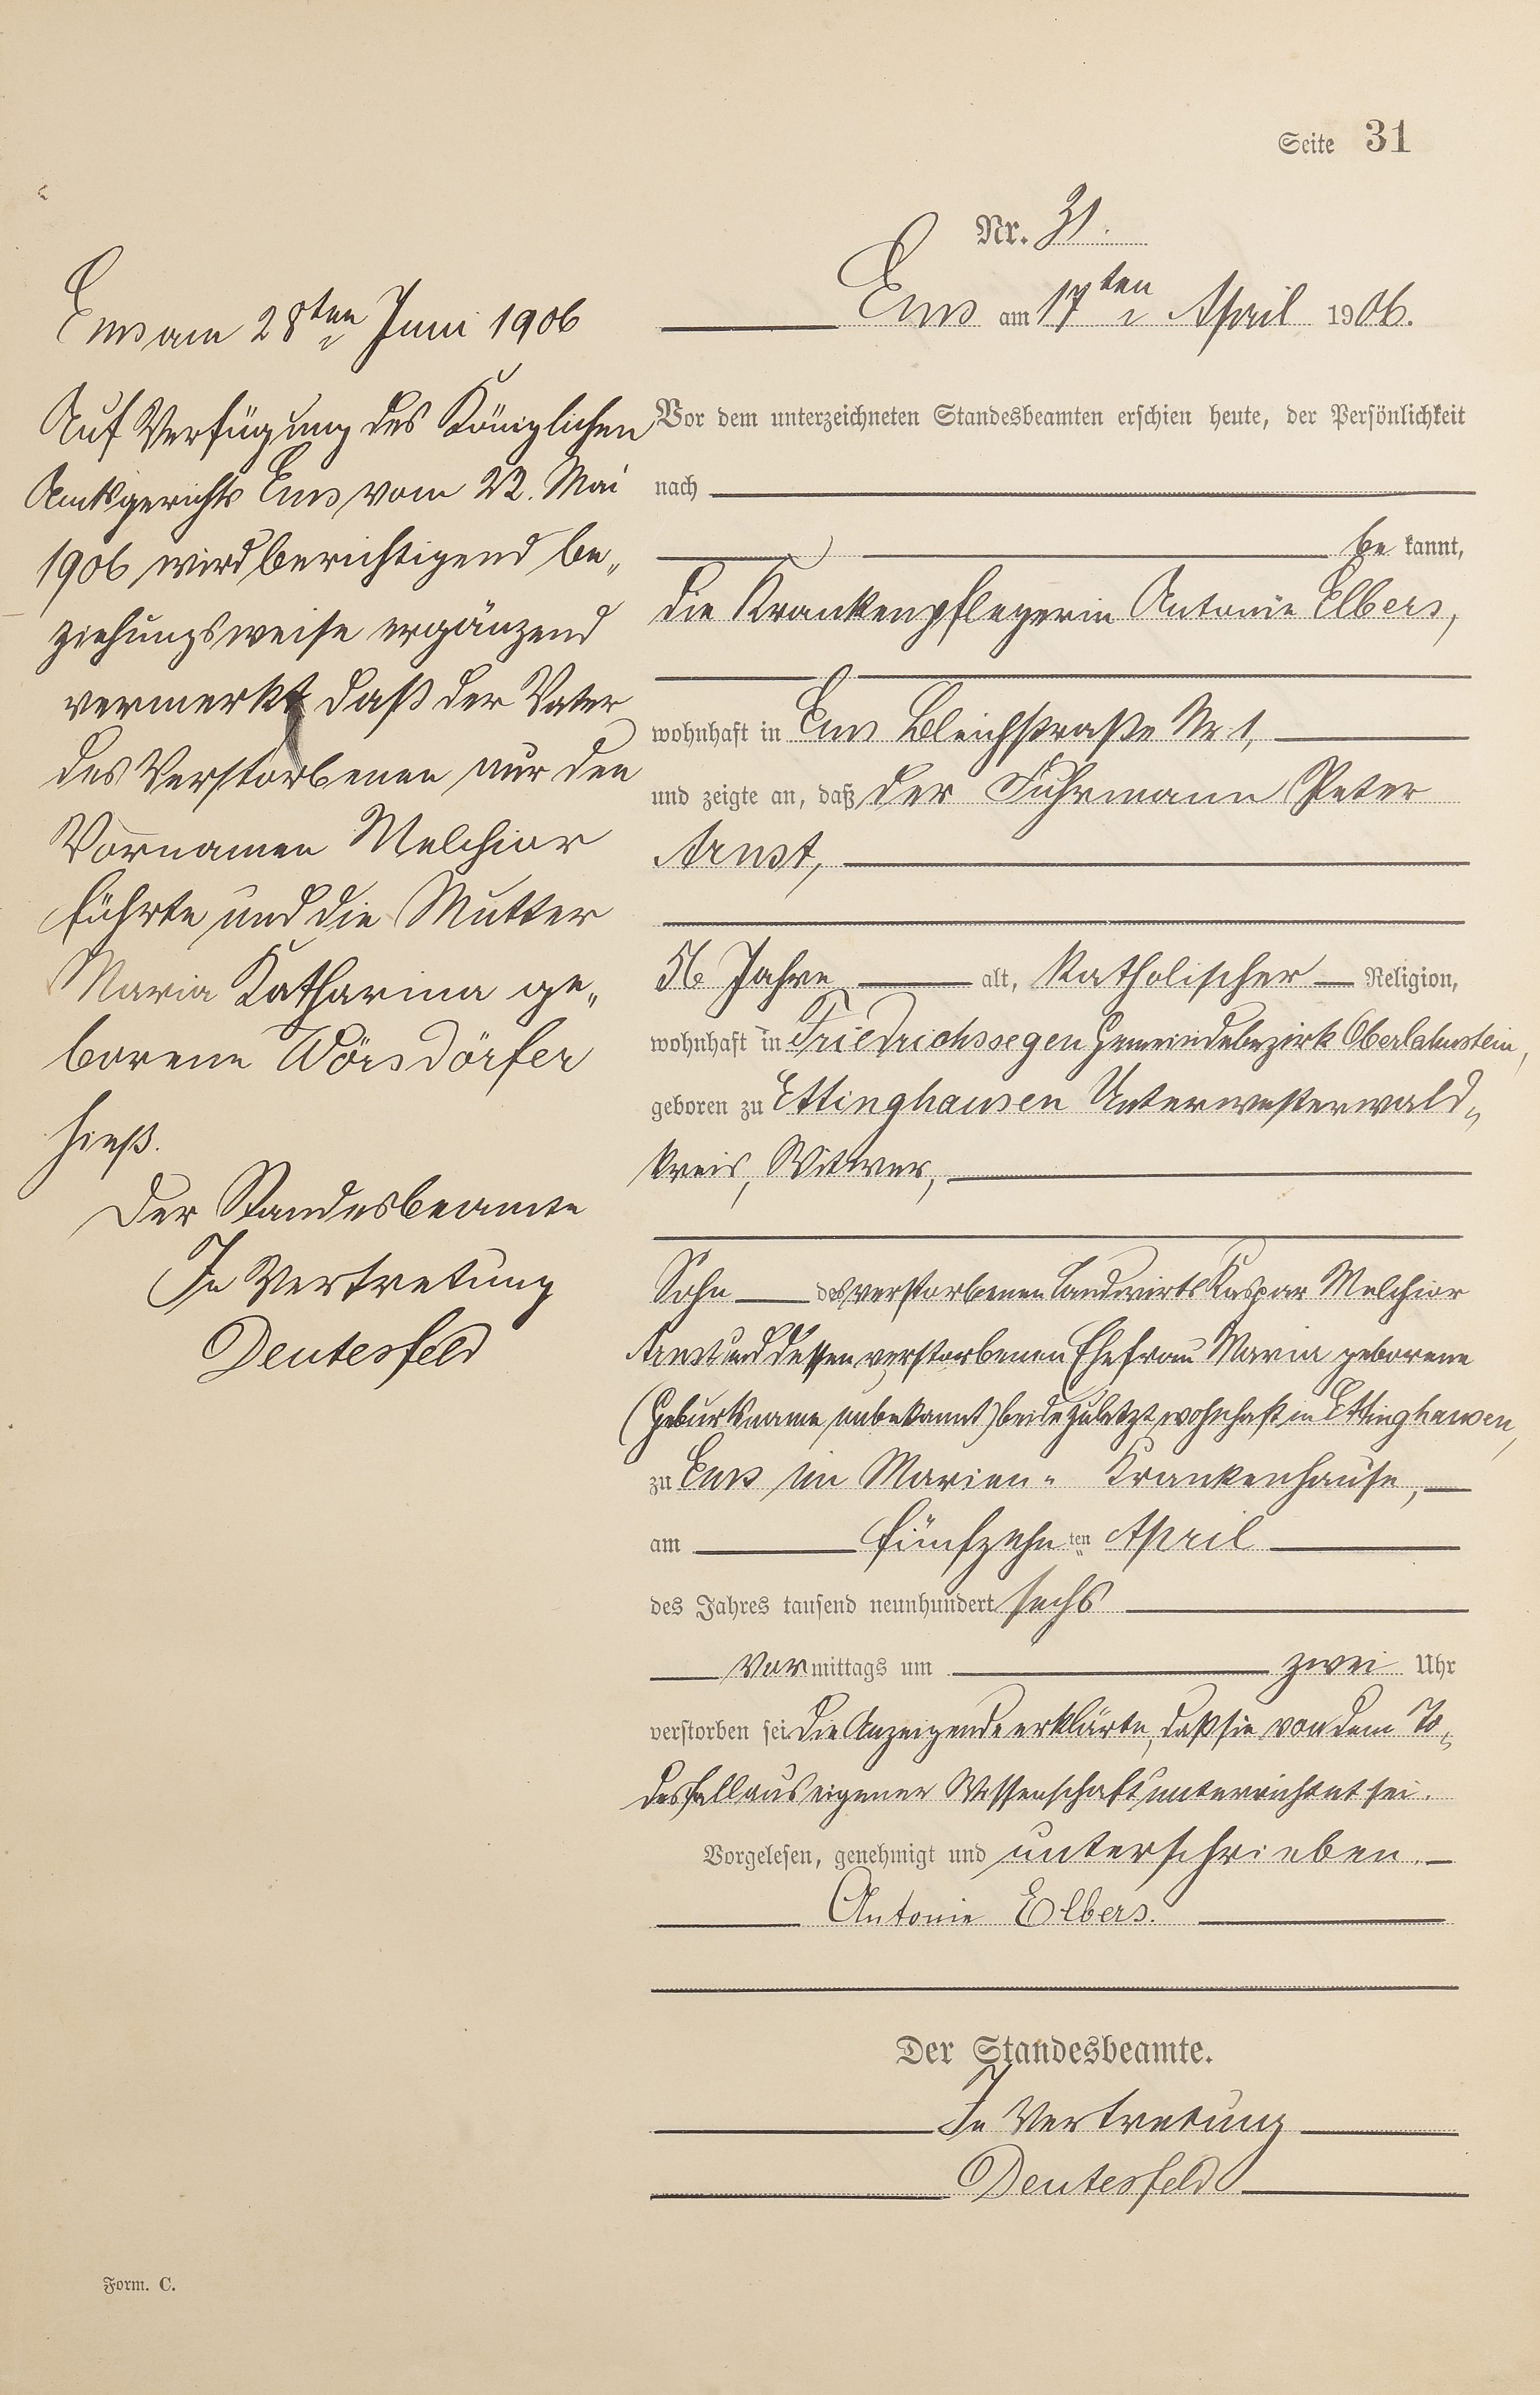 Seite 31
Nr. 31.
Ems am 17ten April 1906.
Vor dem unterzeichneten Standesbeamten erschien heute, der Persönlichkeit
nach
be kannt,
die Krankenpflegerin Antonie Elbers,
wohnhaft in Ems Bleichstraße Nr 1,
und zeigte an, daß der Fuhrmann Peter
Arnst,
56 Jahre alt, katholischer Religion,
wohnhaft in Friedrichssegen Gemeindebezirk Oberlahnstein,
geboren zu Ettinghausen Unterwesterwald„
kreis, Witwer,
Sohn des verstorbenen Landwirts Kaspar Melchior
Arnst und dessen verstorbenen Ehefrau Maria geborene
(Geburtsname unbekannt) beide zuletzt wohnhaft in Ettinghausen,
zu Ems im Marien„ Krankenhause,
am fünfzehnten April
des Jahres tausend neunhundert sechs
vormittags um zwei Uhr
verstorben sei. Die Anzeigende erklärte, daß sie von dem To„
desfall aus eigener Wissenschaft unterrichtet sei.
Vorgelesen, genehmigt und unterschrieben.
Antonie Elbers.
Der Standesbeamte.
In Vertretung
Deutesfeld
Ems am 28ten Juni 1906
Auf Verfügung des Königlichen
Amtsgerichts Ems vom 22. Mai
1906 wird berichtigend be„
ziehungsweise ergänzend
vermerkt daß der Vater
des Verstorbenen nur den
Vornamen Melchior
führte und die Mutter
Maria Katharina ge„
borene Wörsdörfer
hieß.
Der Standesbeamte
In Vertretung
Deutesfeld
Form. C.